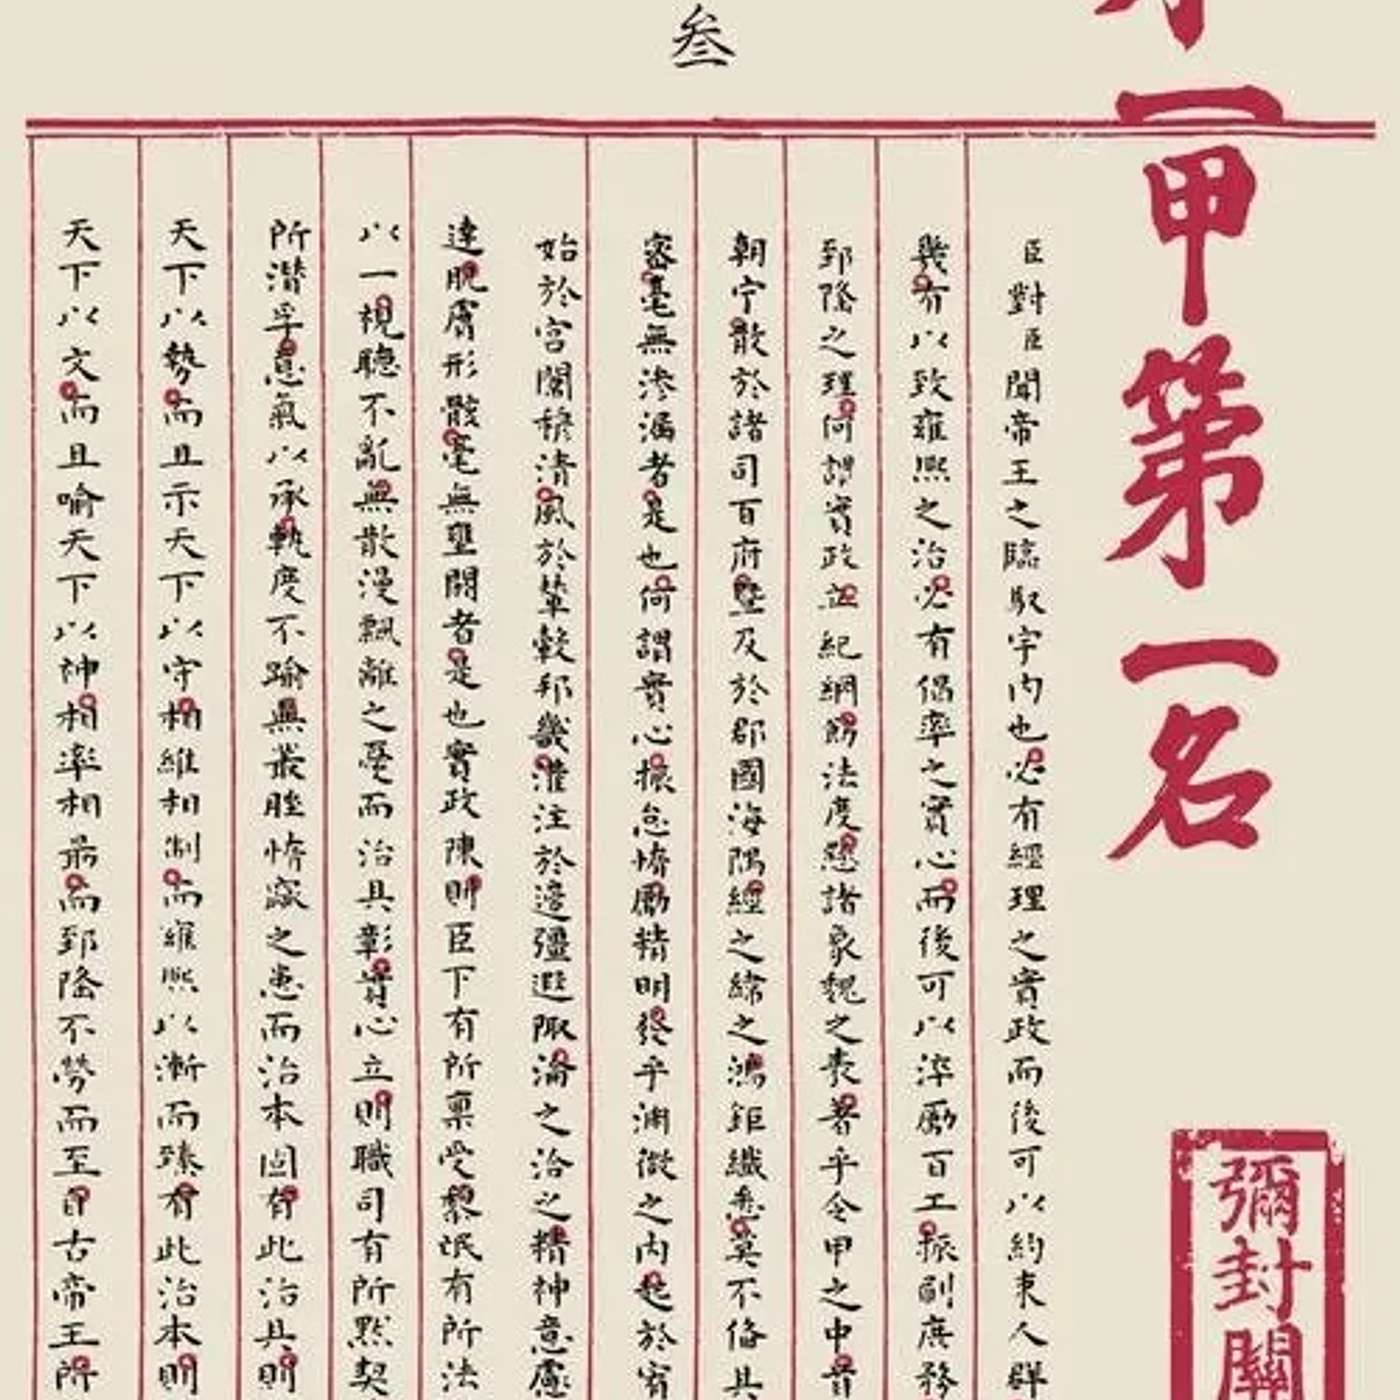 叁
一甲第一名
臣對臣聞帝王之臨馭宇內也必有經理之實政而後可以約束人群
幾有以致雍熙之治必有倡率之實心而後可以淬勵百工振刷庶務
郅隆之理何謂實政立紀綱飭法度懸諸象魏之表著乎令甲之中首
朝宁散於諸司百府暨及於郡國海隅經之緯之鴻鉅纖悉莫不俻具
密毫無滲漏者是也何謂實心振怠惰勵精明發乎淵微之內起於宥
始於宮闈穆清風於輦轂邦畿灌注於邊疆遐陬淪之洽之精神意慮
達肌膚形骸毫無壅閼者是也實政陳則臣下有所稟受黎氓有所法
以一視聽不亂無散漫飄離之憂而治具彰實心立則職司有所默契
所潛孚意氣以承軌度不踰無叢脞惰窳之患而治本固有此治具則
天下以勢而且示天下以守相維相制而雍熙以漸而臻有此治本則
天下以文而且喻天下以神相率相勗而郅隆不勞而至自古帝王所
彌封關